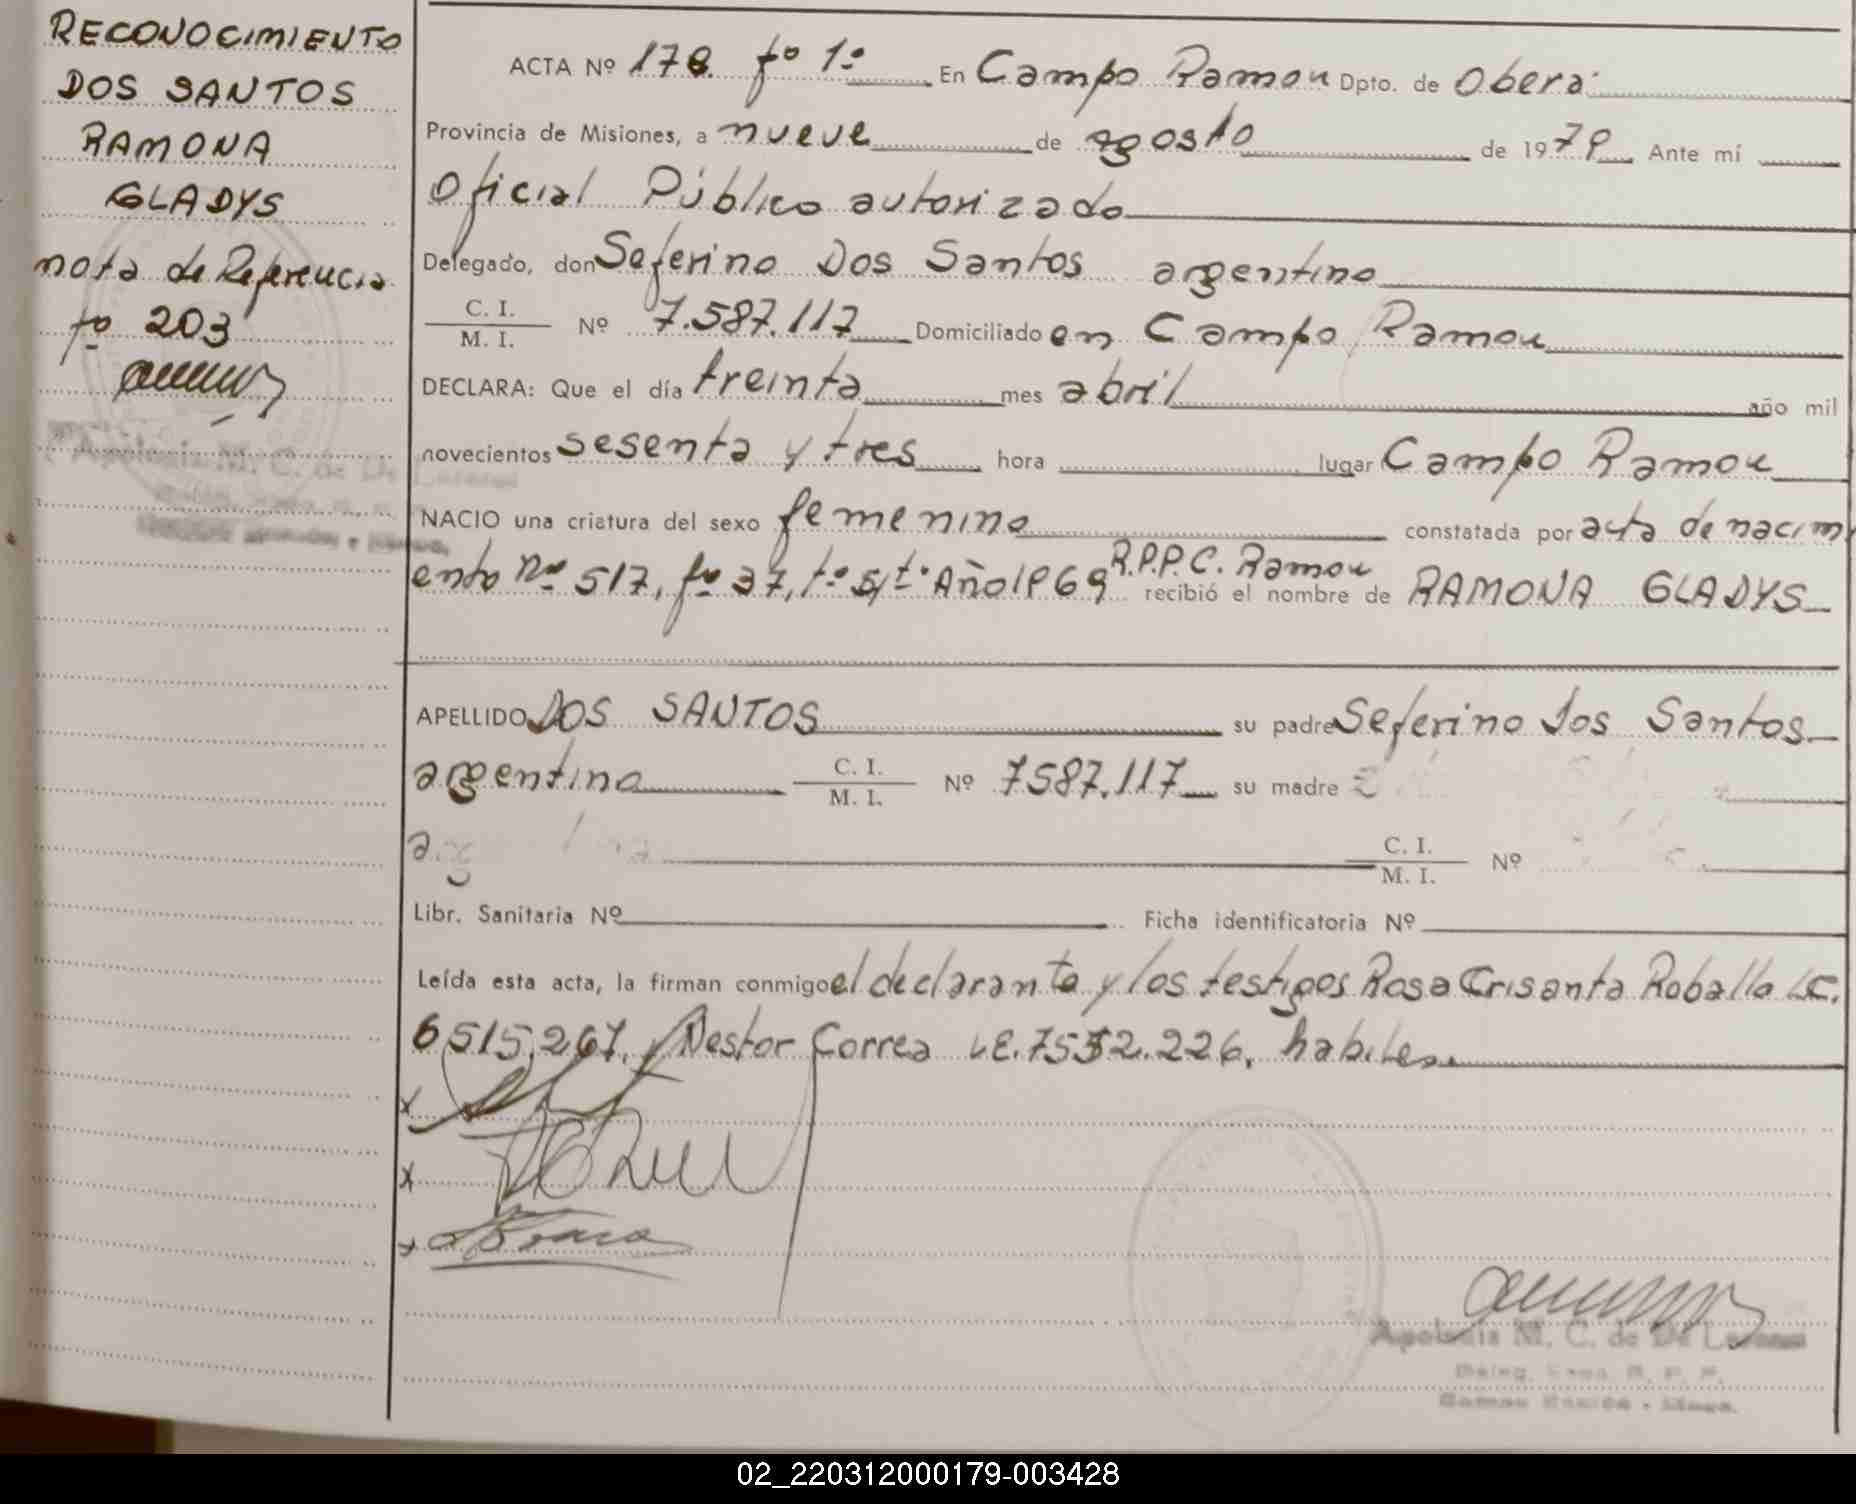 RECONOCIMIENTO
DOS SANTOS
RAMONA
GLADYS
nota de Referencia
fº 203
ACTA Nº 178. fº 1º En Campo Ramon Dpto. de Obera
Provincia de Misiones, a nueve de agosto de 1979 Ante mí
Oficial Público autorizado
Delegado, don Seferino Dos Santos argentino
C. I.
M. I. Nº 7.587.117 Domiciliado en Campo Ramon
DECLARA: Que el día treinta mes abril año mil
novecientos sesenta y tres hora lugar Campo Ramon
NACIO una criatura del sexo femenino constatada por acta de nacimi
ento nº 517, fº 37, tº s/tº Año 1969 R.P.P.C. Ramon recibió el nombre de RAMONA GLADYS
APELLIDO DOS SANTOS su padre Seferino Dos Santos
argentino C. I.
M. I. Nº 7587.117 su madre
C. I.
M. I. Nº
Libr. Sanitaria Nº Ficha identificatoria Nº
Leída esta acta, la firman conmigo el declarante y los testigos Rosa Crisanta Roballo LC.
6515.267, Nestor Correa LE. 7532.226, habiles.
x
x
x
Apolonia M. C. de De
Apolonia M. C. de De
02_220312000179-003428